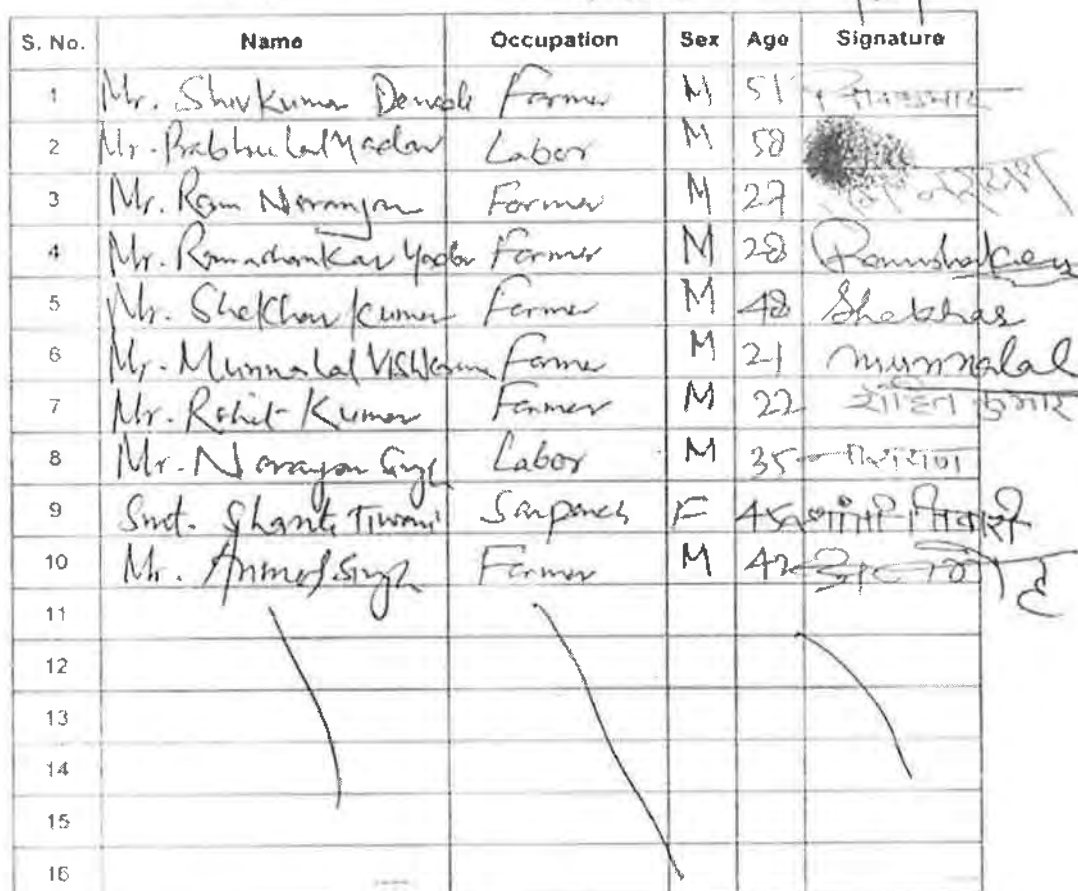 S. No. Name Occupation Sex Age Signature
1 Mr. Shivkumar Farmer M 51
2 Mr. Prabhulal Yadav Labor M 58
3 Mr. Ram Narayan Farmer M 27
4 Mr. Ramashankar Yadav Farmer M 28 Ramshakar
5 Mr. Shekhar Kumar Farmer M 48 Shekhar
6 Mr. Munnalal Vishkarma Farmer M 21 munnalal
7 Mr. Rohit Kumar Farmer M 22 रोहित कुमार
8 Mr. Narayan Singh Labor M 35 नारायण
9 Smt. Shanti Tiwari Sarpanch F 45 शांती तिवारी
10 Mr. Singh Farmer M
11
12
13
14
15
16